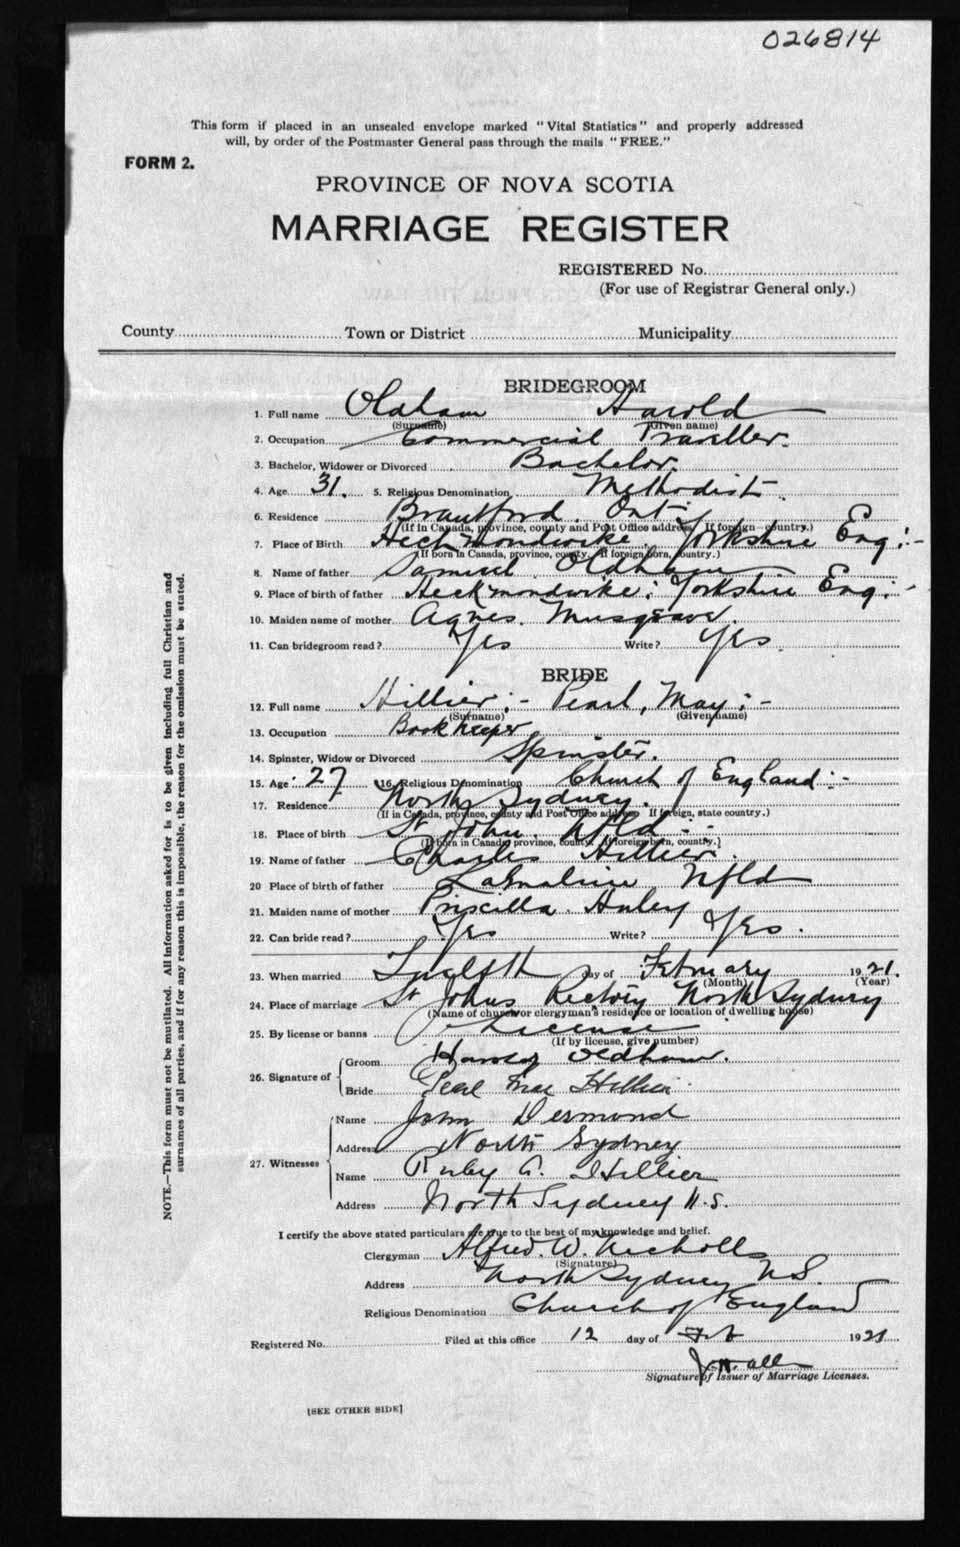 026814
This form if placed in an unsealed envelope marked "Vital Statistics" and properly addressed
will, by order of the Postmaster General pass through the mails "FREE."
FORM 2.
PROVINCE OF NOVA SCOTIA
MARRIAGE REGISTER
REGISTERED No.
(For use of Registrar General only.)
County Town or District Municipality
BRIDEGROOM
1. Full name Oldham Harold
(Surname) (Given name)
2. Occupation Commercial Traveller.
3. Bachelor, Widower or Divorced Bachelor.
4. Age 31. 5. Religious Denomination Methodist.
6. Residence Brantford. Ont.
(If in Canada, province, county and Post Office address. If foreign—country.)
7. Place of Birth Heckmondwike. Yorkshire Eng:-
(If born in Canada, province, county. If foreign born, country.)
8. Name of father Samuel Oldham
9. Place of birth of father Heckmondwike: Yorkshire Eng:-
10. Maiden name of mother Agnes. Musgrave.
11. Can bridegroom read? Yes Write? Yes.
BRIDE
12. Full name Hillier:- Pearl, May:-
(Surname) (Given name)
13. Occupation Book keeper
14. Spinster, Widow or Divorced Spinster.
15. Age: 27 16. Religious Denomination Church of England:-
17. Residence North Sydney.
(If in Canada, province, county and Post Office address If foreign, state country.)
18. Place of birth St John. Nfld
(If born in Canada, province, county. If foreign born, country.]
19. Name of father Charles Hillier.
20 Place of birth of father Lamaline Nfld
21. Maiden name of mother Priscilla
22. Can bride read? Yes Write? Yes.
23. When married Twelfth day of February 1921.
(Month) (Year)
24. Place of marriage St Johns Rectory North Sydney
(Name of church or clergyman's residence or location of dwelling house)
25. By license or banns License
(If by license, give number)
26. Signature of
Groom Harold Oldham.
Bride Pearl Mae Hillier.
27. Witnesses
Name John Desmond
Address North Sydney
Name Ruby A. Hillier
Address North Sydney N.S.
I certify the above stated particulars are true to the best of my knowledge and belief.
Clergyman Alfred. W. Nicholls
(Signature)
Address North Sydney N.S.
Religious Denomination Church of England
Registered No. Filed at this office 12 day of Feb 1921
Signature of Issuer of Marriage Licenses.
[SEE OTHER SIDE]
NOTE.—This form must not be mutilated. All information asked for is to be given including full Christian and
surnames of all parties, and if for any reason this is impossible, the reason for the omission must be stated.